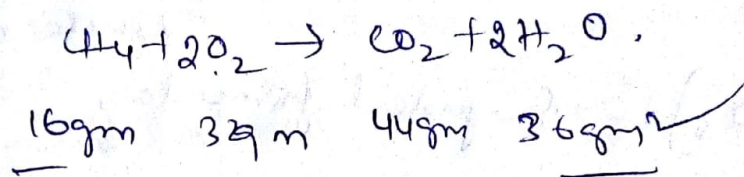 CH4+2O2 → CO2+2H2O.
16gm 32gm 44gm 36gm